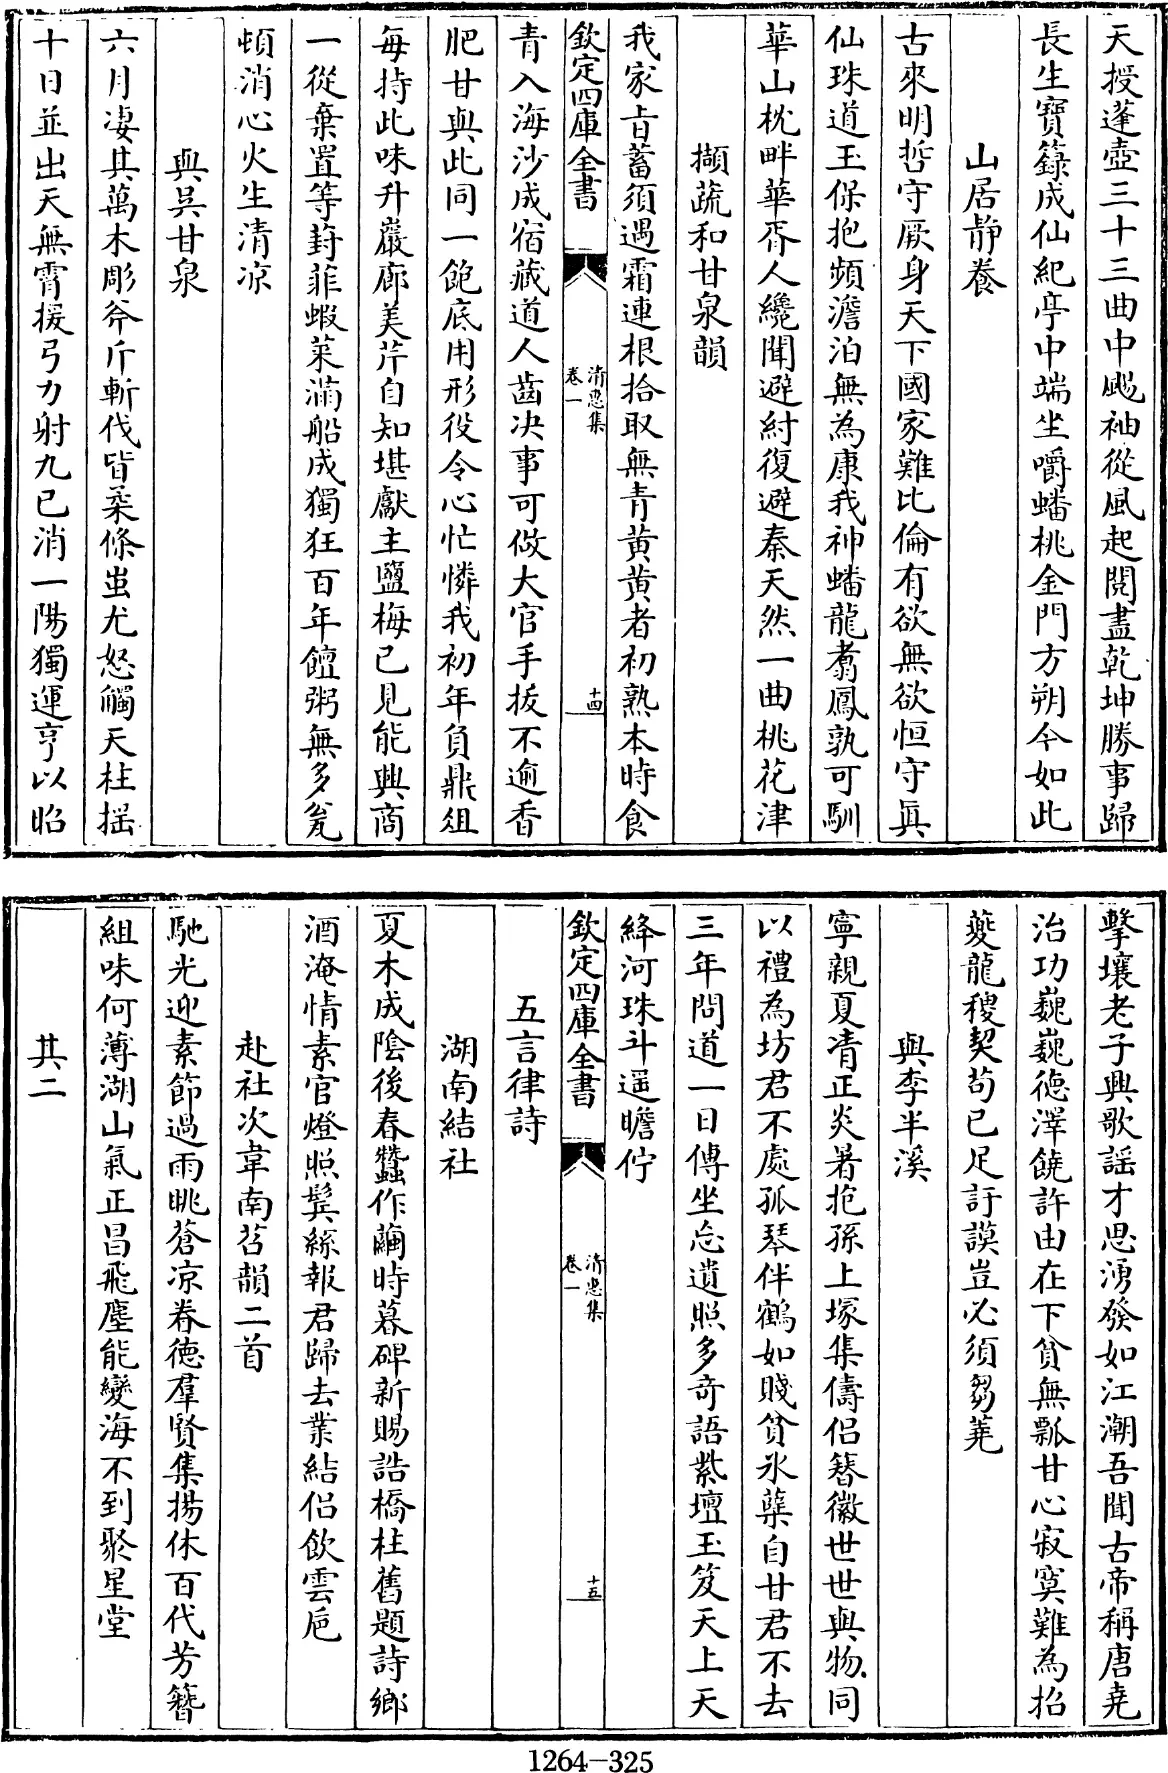 天授蓬壺三十三曲中颺袖從風起閱盡乾坤勝事歸
長生寶籙成仙紀亭中端坐嚼蟠桃金門方朔今如此
山居靜養
古來明哲守厥身天下國家難比倫有欲無欲恒守眞
仙珠道玉保抱頻澹泊無為康我神蟠龍翥鳳孰可馴
華山枕畔華胥人纔聞避紂復避秦天然一曲桃花津
擷蔬和甘泉韻
我家㫖蓄須遇霜連根拾取無青黄黄者初熟本時食
欽定四庫全書
清惠集
卷一
十四
青入海沙成宿藏道人齒決事可做大官手拔不逾香
肥甘與此同一飽底用形役令心忙憐我初年負鼎俎
每持此味升巖廊美芹自知堪獻主鹽梅已見能興商
一從棄置等葑菲蝦菜滿船成獨狂百年饘粥無多瓮
頓消心火生清凉
與吳甘泉
六月淒其萬木彫斧斤斬伐皆柔條蚩尤怒觸天柱揺
十日並出天無霄援弓力射九已消一陽獨運亨以昭
擊壤老子興歌謡才思湧發如江潮吾聞古帝稱唐堯
治功巍巍德澤饒許由在下貧無瓢甘心寂寞難為招
夔龍稷契苟已足訏謨豈必須芻蕘
與李半溪
寧親夏凊正炎暑抱孫上塚集儔侣簪徽世世與物同
以禮為坊君不處孤琴伴鶴如賤貧氷蘖自甘君不去
三年問道一日傳坐忘遺照多奇語紫壇玉笈天上天
絳河珠斗遥瞻佇
欽定四庫全書
清惠集
卷一
十五
五言律詩
湖南結社
夏木成陰後春蠶作繭時暮碑新賜誥橋柱舊題詩鄉
酒淹情素官燈照鬂絲報君歸去業結侣飲雲巵
赴社次韋南苕韻二首
馳光迎素節過雨眺蒼凉眷德羣賢集揚休百代芳簪
組味何薄湖山氣正昌飛塵能變海不到聚星堂
其二
1264-325